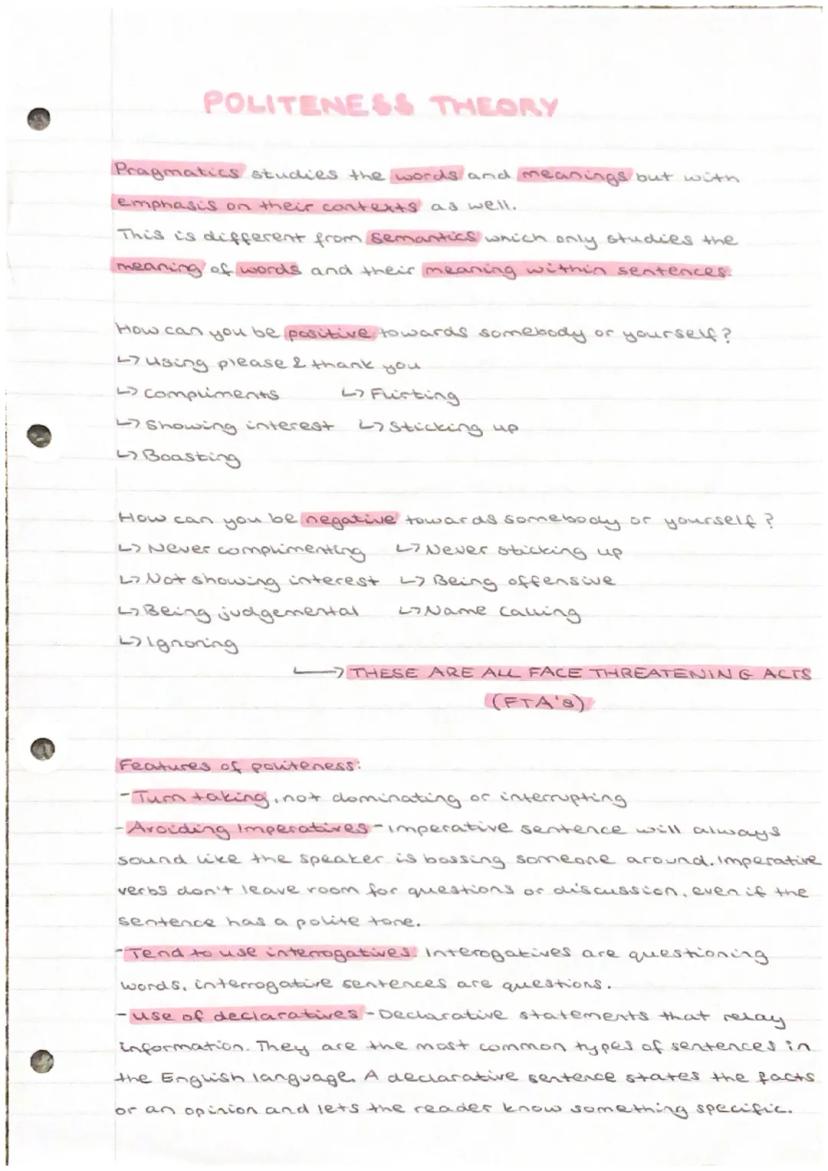 POLITENESS THEORY
Pragmatics studies the words and meanings but with
emphasis on their contexts as well.
This is different from semantics which only studies the
meaning of words and their meaning within sentences.
How can you be positive towards somebody or yourself?
↳ Using please & thank you
↳ Compliments ↳ Flirting
↳ Showing interest ↳ Sticking up
↳ Boasting
How can you be negative towards somebody or yourself?
↳ Never complimenting ↳ Never sticking up
↳ Not showing interest ↳ Being offensive
↳ Being judgemental ↳ Name calling
↳ Ignoring
→ THESE ARE ALL FACE THREATENING ACTS
(FTA's)
Features of politeness:
- Turn taking, not dominating or interrupting
- Avoiding Imperatives - Imperative sentence will always
sound like the speaker is bossing someone around. Imperative
verbs don't leave room for questions or discussion, even if the
sentence has a polite tone.
- Tend to use interrogatives. Interogatives are questioning
words, interrogative sentences are questions.
- Use of declaratives - Declarative statements that relay
information. They are the most common types of sentences in
the English language. A declarative sentence states the facts
or an opinion and lets the reader know something specific.